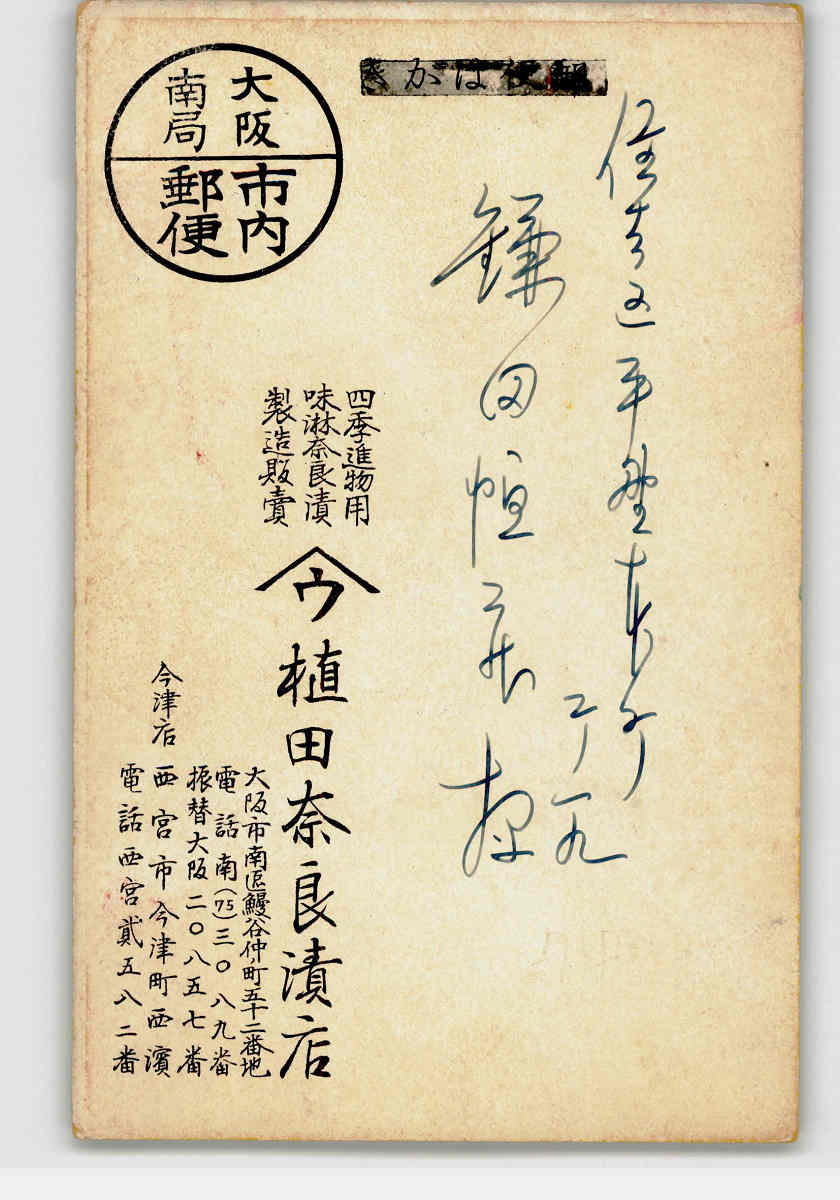 郵便はかき
大阪南局
市内郵便
住吉区平野東
二ノ一九
鎌田恒
様
四季進物用
味淋奈良漬
製造販賣
ウ
植田奈良漬店
大阪市南區鰻谷仲ノ町五十二番地
電話南(75)三〇八九番
振替大阪二〇八五七番
今津店
西宮市今津町西濱
電話西宮貳五八二番